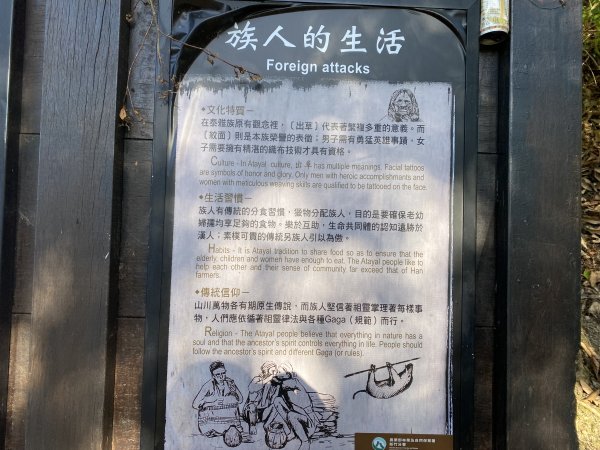 族人的生活
Foreign attacks
◆文化特質－
在泰雅族原有觀念裡，〔出草〕代表著繁複多重的意義。而
〔紋面〕則是本族榮譽的表徵；男子需有勇猛英雄事蹟，女
子需要擁有精湛的織布技術才具有資格。
Culture - In Atayal culture, 出草 has multiple meanings. Facial tattoos
are symbols of honor and glory. Only men with heroic accomplishments and
women with meticulous weaving skills are qualified to be tattooed on the face.
◆生活習慣－
族人有傳統的分食習慣，獵物分配族人，目的是要確保老幼
婦孺均享足夠的食物。樂於互助，生命共同體的認知遠勝於
漢人；素樸可貴的傳統另族人引以為傲。
Habits - It is Atayal tradition to share food so as to ensure that the
elderly, children and women have enough to eat. The Atayal people like to
help each other and their sense of community far exceed that of Han
farmers.
◆傳統信仰－
山川萬物各有期原生傳說，而族人堅信著祖靈掌理著每樣事
物，人們應依循著祖靈律法與各種Gaga（規範）而行。
Religion - The Atayal people believe that everything in nature has a
soul and that the ancestor's spirit controls everything in life. People should
follow the ancestor's spirit and different Gaga (or rules).